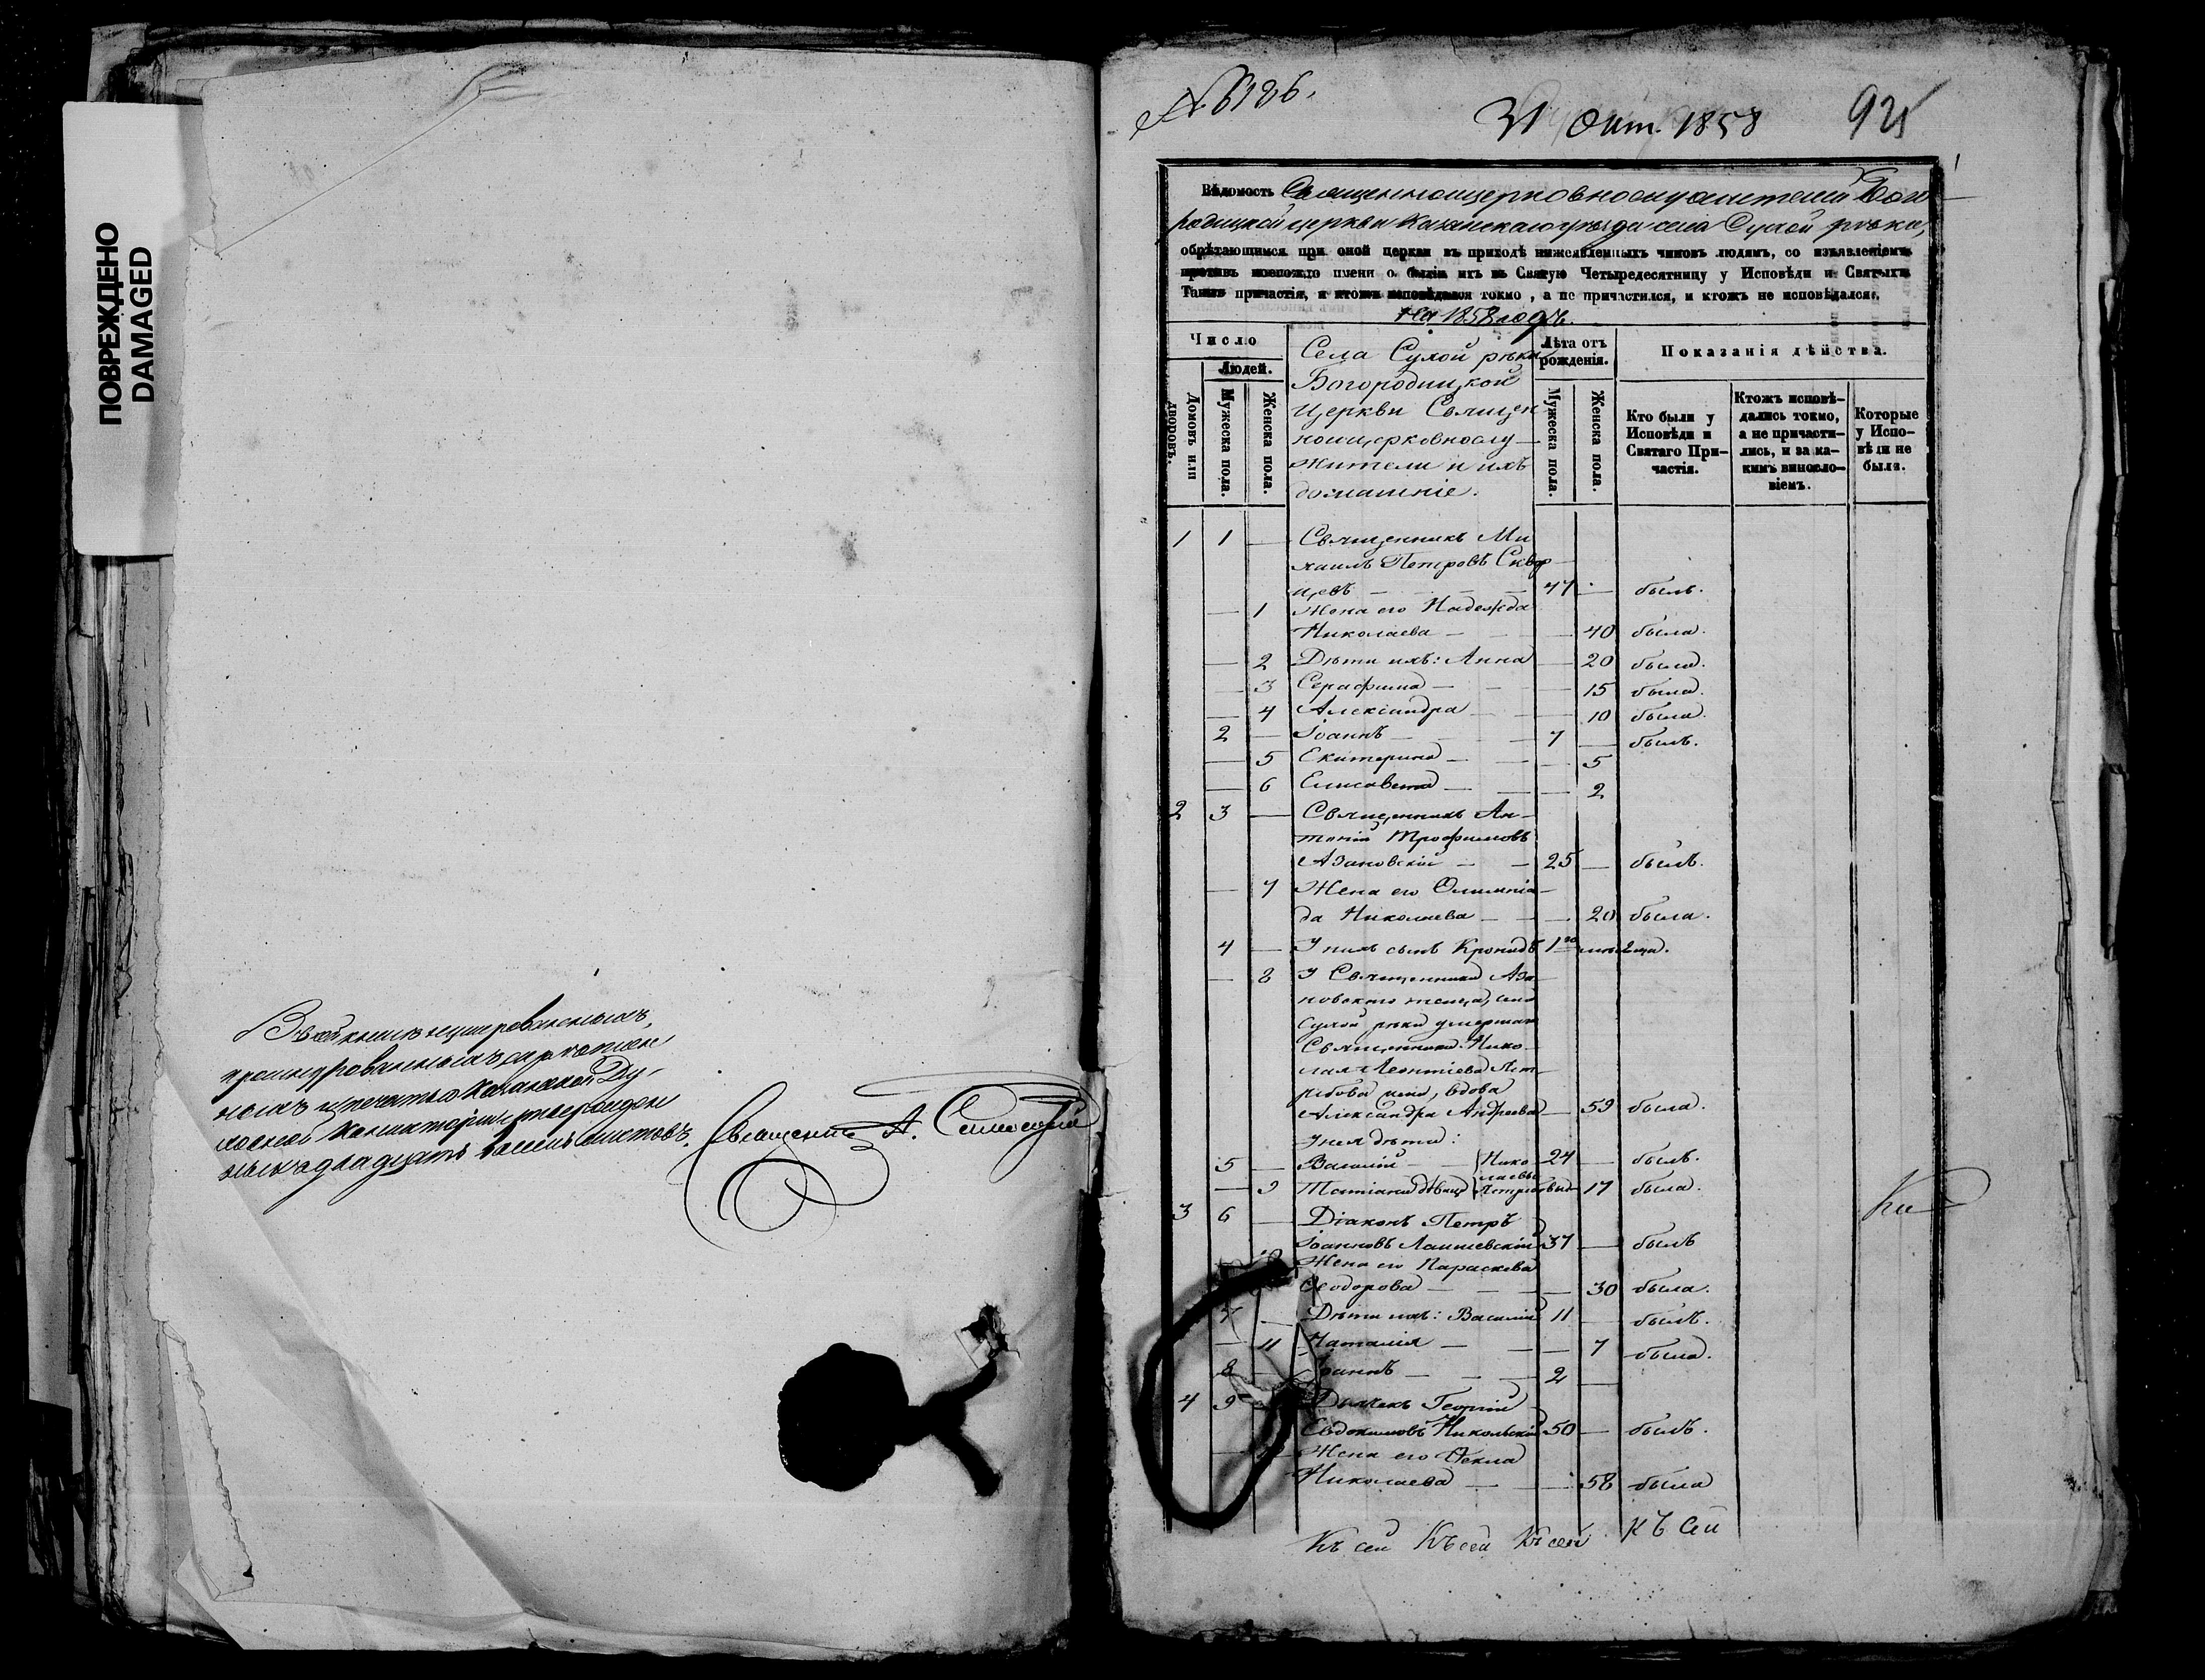 ПОВРЕЖДЕНО
DAMAGED
В сей книгѣ нумерованныхъ,
прошнурованныхъ и
ныхъ печатью Казанской Ду-
ховной Консисторіи
ныхъ двадцать восемь листовъ.
Священникъ А.
№ 6186.
31 Окт. 1858
925
Вѣдомость Священноцерковнослужителей Бого-
родицкой церкви Казанскаго уѣзда села Сухой рѣки,
обрѣтающимся при оной церкви въ приходѣ нижеявленныхъ чиновъ людямъ, со изъявленіемъ
противъ коегождо имени о бытіи ихъ въ Святую Четыредесятницу у Исповѣди и Святыхъ
Таинъ причастія, и ктожъ исповѣдался токмо, а не причастился, и ктожъ не исповѣдался.
На 1858 годъ.
Число
Людей.
Домовъ или дворовъ.
Мужеска пола.
Женска пола.
Села Сухой рѣки
Богородицкой
Церкви Священ
ноцерковнослу-
жители и ихъ
домашніе.
Лѣта отъ рожденія.
Мужеска пола.
Женска пола.
Показанія дѣйства.
Кто были у
Исповѣди и
Святаго При-
частія.
Ктожъ исповѣ-
дались токмо,
а не причасти-
лись, и за ка-
кимъ винословіемъ.
Которые
у Испо-
вѣди не
были.
1 1 — Священникъ Ми
хаилъ Петровъ Сквор-
цевъ — 47 — былъ.
— 1 Жена его Надежда
Николаева — — 40 была.
— 2 Дѣти ихъ: Анна — 20 была.
— 3 Серафима — — 15 была.
— 4 Александра — — 10 была.
2 — Іоаннъ — 7 — былъ.
— 5 Екатерина — — 5
— 6 Елисавета — — 2
2 3 — Священникъ Ан-
тоній Трофимовъ
Азановскій — 25 — былъ.
— 7 Жена его Олимпіа-
да Николаева — — 20 была.
4 — У нихъ сынъ Кронидъ 1го мѣсяца.
— 8 У Священника Аза-
новскаго теща, села
Сухой рѣки умершаго
Священника Нико-
лая Леонтіева Пет-
рова жена, вдова
Александра Андреева — 59 была.
У нея дѣти:
5 — Василій — Нико 24 — былъ.
лаевы
— 9 Татіана дѣвица Петровы — 17 была.
3 6 — Діаконъ Петръ
Іоанновъ Лаишевскій 37 — былъ
10 Жена его Параскева
Ѳеодорова — — 30 была.
7 — Дѣти ихъ: Василій 11 — былъ.
— 11 Наталія — — 7 была.
8 — Іоаннъ — 2 —
4 9 — Дьячекъ Георгій
Евдокимовъ Никольскій 50 — былъ.
— Жена его Ѳекла
Николаева — — 58 была
Къ сей Къ сей Къ сей Къ Сей
Ка